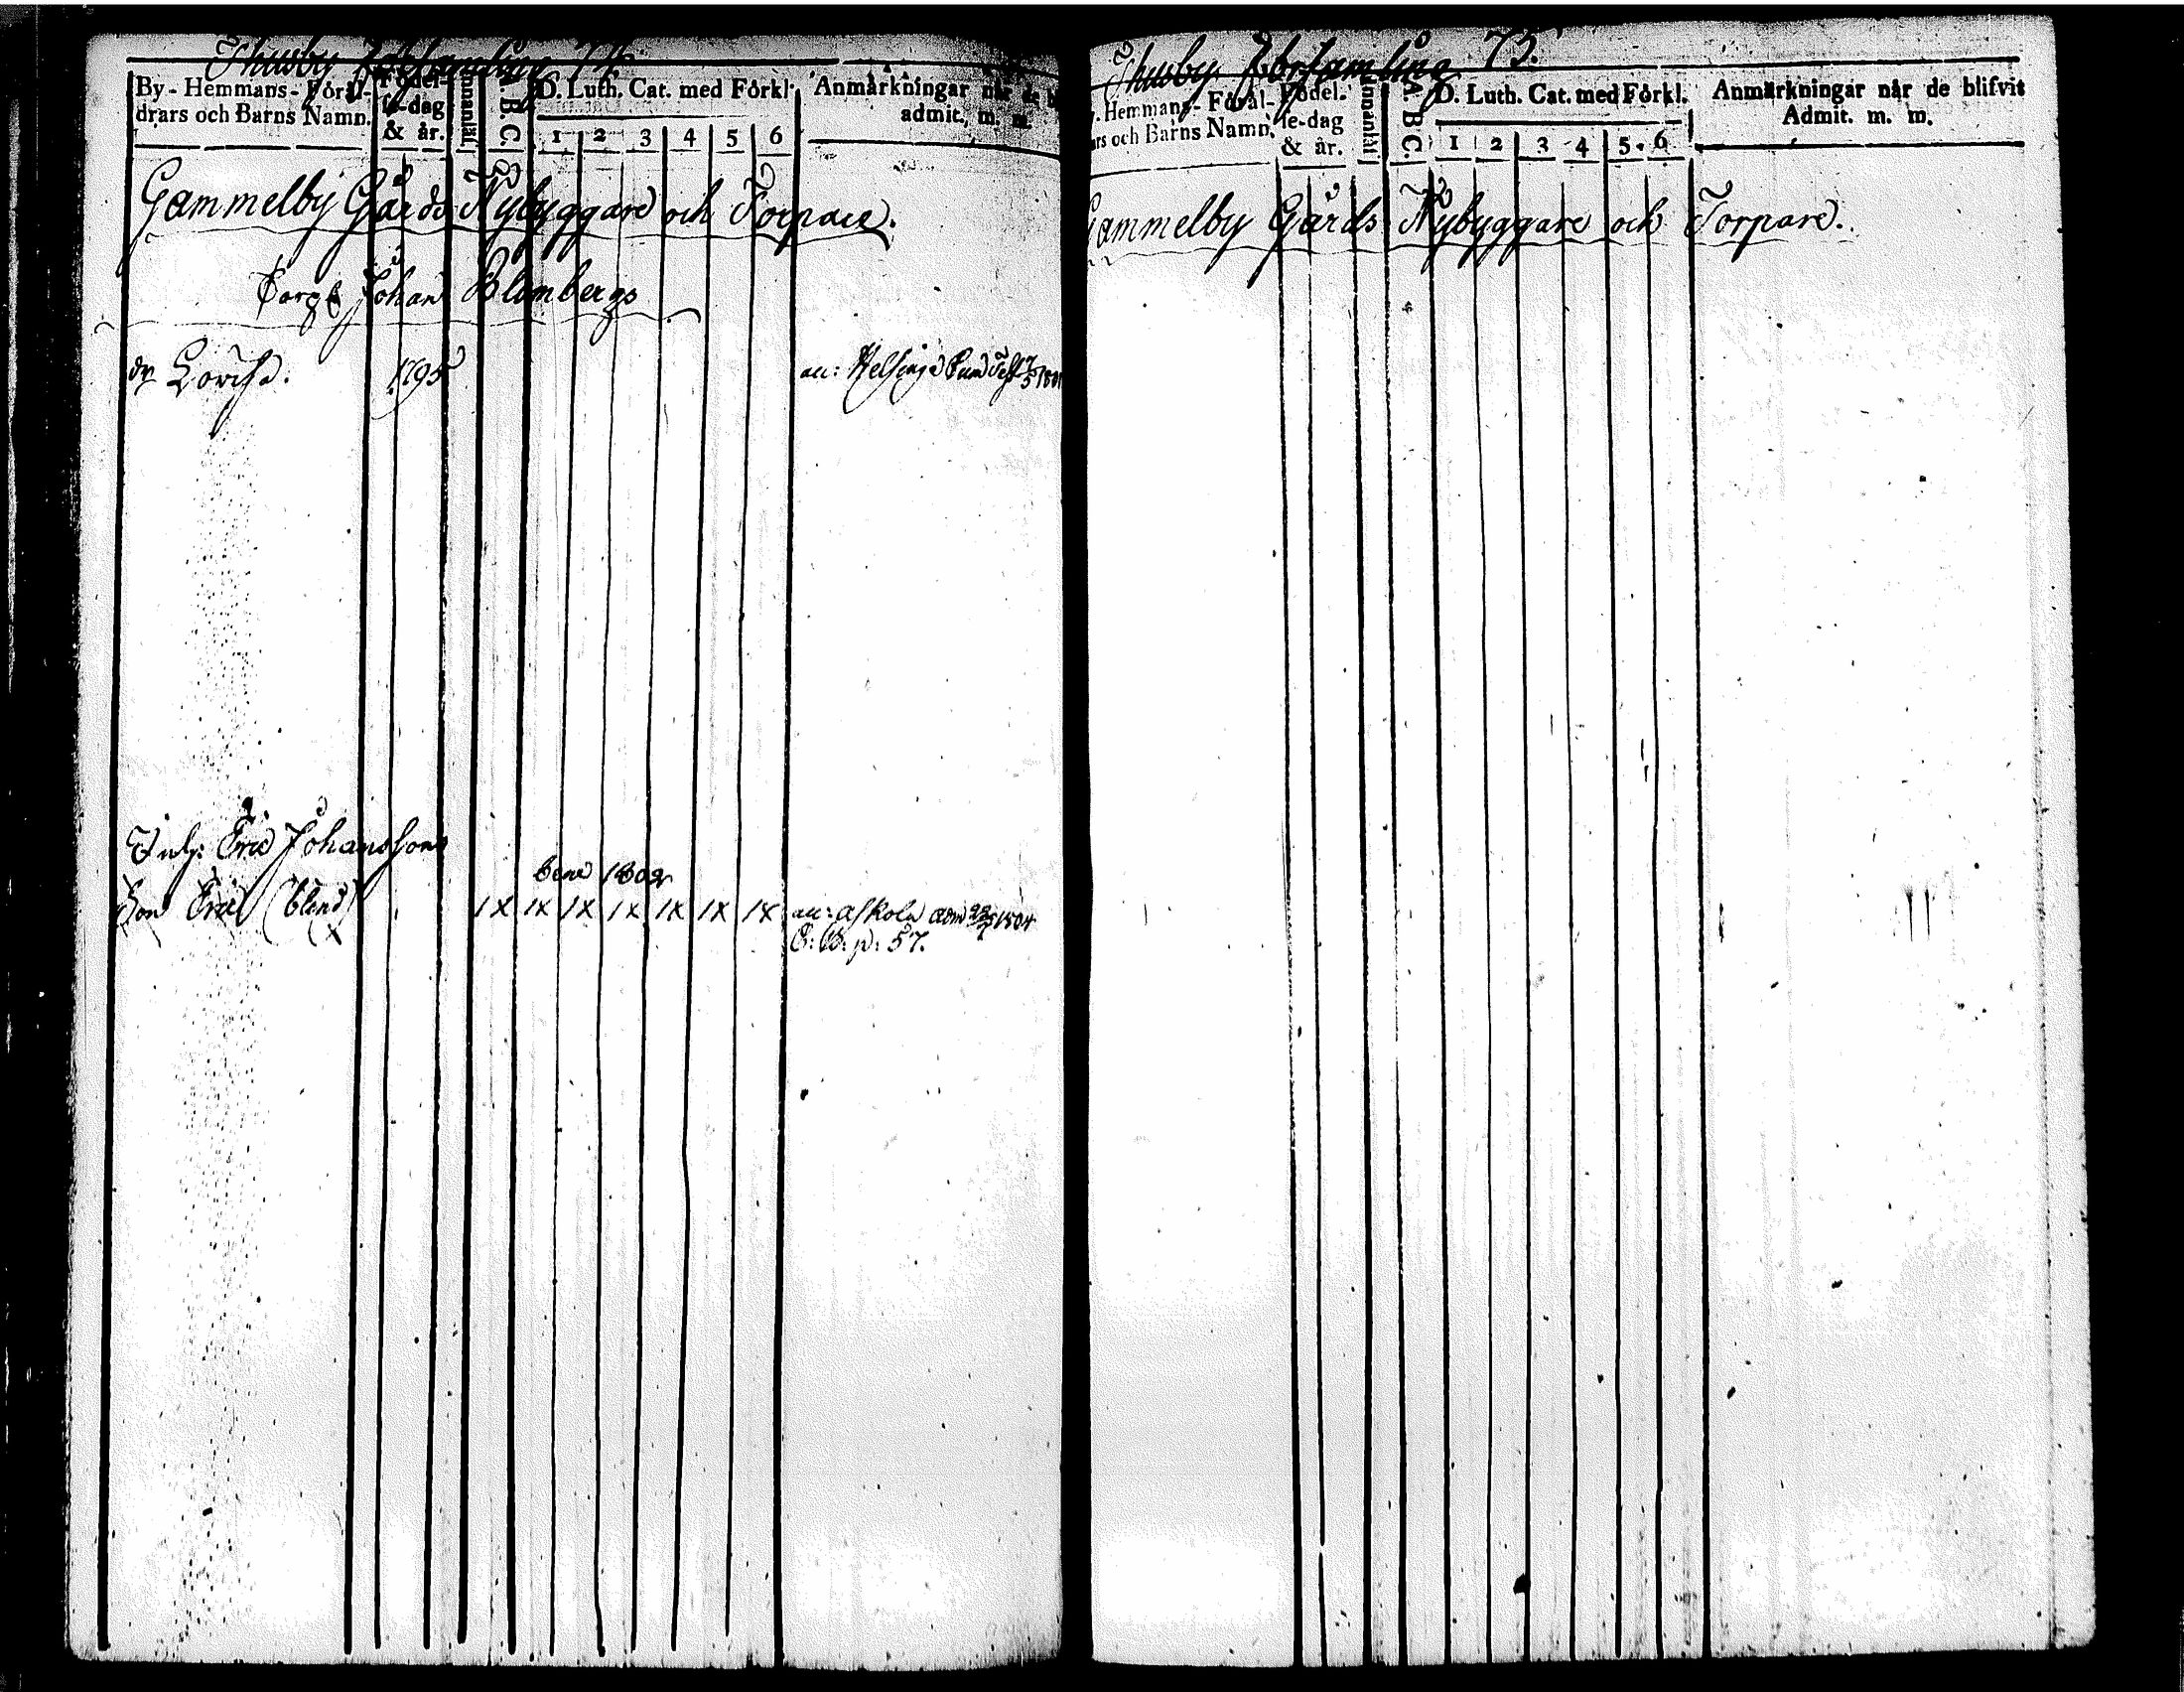 Thusby Församling 74.
By-Hemmans-Föräl-
drars och Barns Namn.
Födel-
se-dag
& år.
Innanläs.
A. B. C.
D. Luth. Cat. med Förkl.
1 2 3 4 5 6
Anmärkningar när de b
admit. m. m.
Gammelby Gårds Nybyggare och Torpare.
Johan Blombergs
dr Lovisa. 1795
Eric Johanssons
bene 1802
Son Eric (blind) IX IX IX IX IX IX IX
p: 57.
Thusby Församling 75.
Hemmans-Föräl-
ars och Barns Namn.
Födel-
se-dag
& år.
Innanläs.
A. B. C.
D. Luth. Cat. med Förkl.
1 2 3 4 5 6
Anmärkningar når de blifvit
Admit. m. m.
Gammelby Gårds Nybyggare och Torpare.